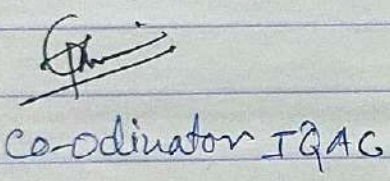 Co-odinator IQAC